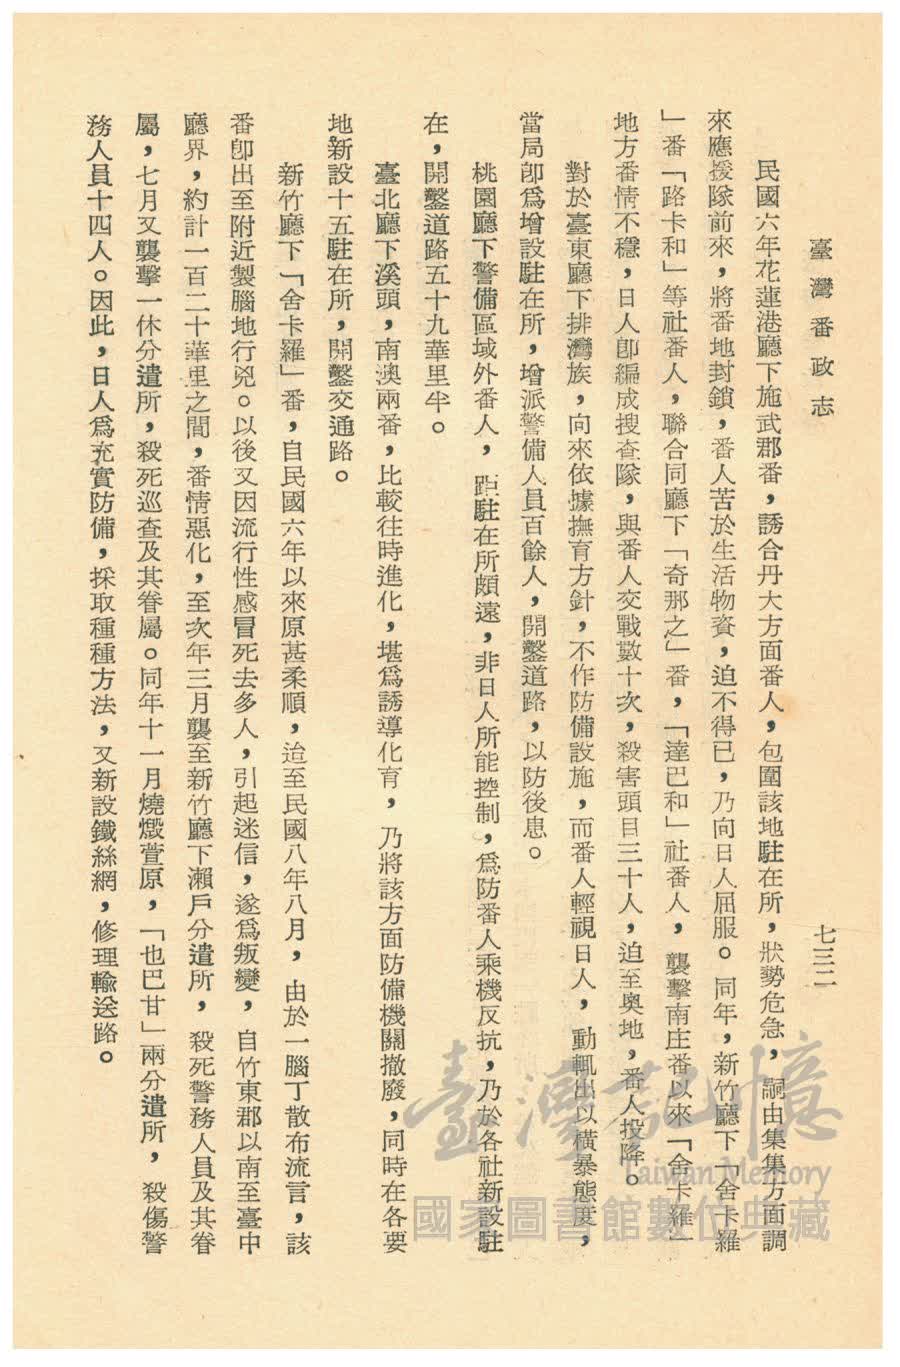 臺灣番政志
七三二
民國六年花蓮港廳下施武郡番，誘合丹大方面番人，包圍該地駐在所，狀勢危急，嗣由集集方面調
來應援隊前來，將番地封鎖，番人苦於生活物資，迫不得已，乃向日人屈服。同年，新竹廳下「舍卡羅
」番「路卡和」等社番人，聯合同廳下「奇那之」番，「達巴和」社番人，襲擊南庄番以來「舍卡羅」
地方番情不穩，日人卽編成搜查隊，與番人交戰數十次，殺害頭目三十人，迫至奧地，番人投降。
對於臺東廳下排灣族，向來依據撫育方針，不作防備設施，而番人輕視日人，動輒出以橫暴態度，
當局卽爲增設駐在所，增派警備人員百餘人，開鑿道路，以防後患。
桃園廳下警備區域外番人，距駐在所頗遠，非日人所能控制，爲防番人乘機反抗，乃於各社新設駐
在，開鑿道路五十九華里半。
臺北廳下溪頭，南澳兩番，比較往時進化，堪爲誘導化育，乃將該方面防備機關撤廢，同時在各要
地新設十五駐在所，開鑿交通路。
新竹廳下「舍卡羅」番，自民國六年以來原甚柔順，迨至民國八年八月，由於一腦丁散布流言，該
番卽出至附近製腦地行兇。以後又因流行性感冒死去多人，引起迷信，遂爲叛變，自竹東郡以南至臺中
廳界，約計一百二十華里之間，番情惡化，至次年三月襲至新竹廳下瀨戶分遣所，殺死警務人員及其眷
屬，七月又襲擊一休分遣所，殺死巡查及其眷屬。同年十一月燒燬萱原，「也巴甘」兩分遣所，殺傷警
務人員十四人。因此，日人爲充實防備，採取種種方法，又新設鐵絲網，修理輸送路。
臺灣記憶
Taiwan Memory
國家圖書館數位典藏